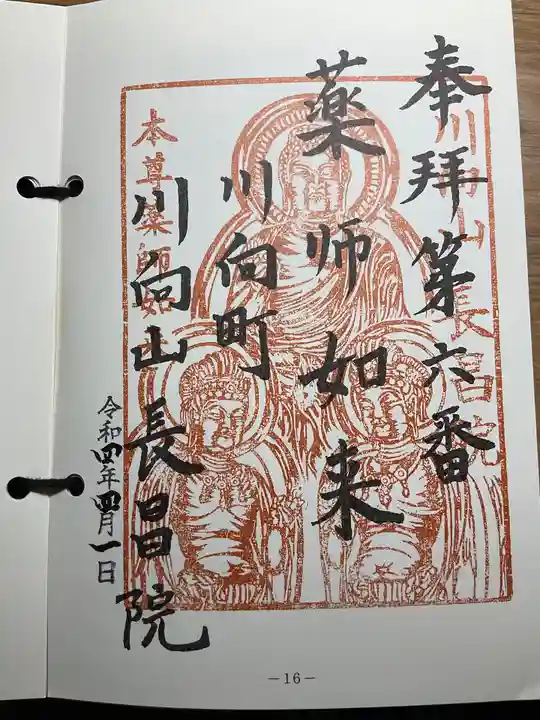 奉拝第六番
薬师如来
川向町
川向山長昌院
令和四年四月一日
川向山長昌院
本尊薬師如
－16－